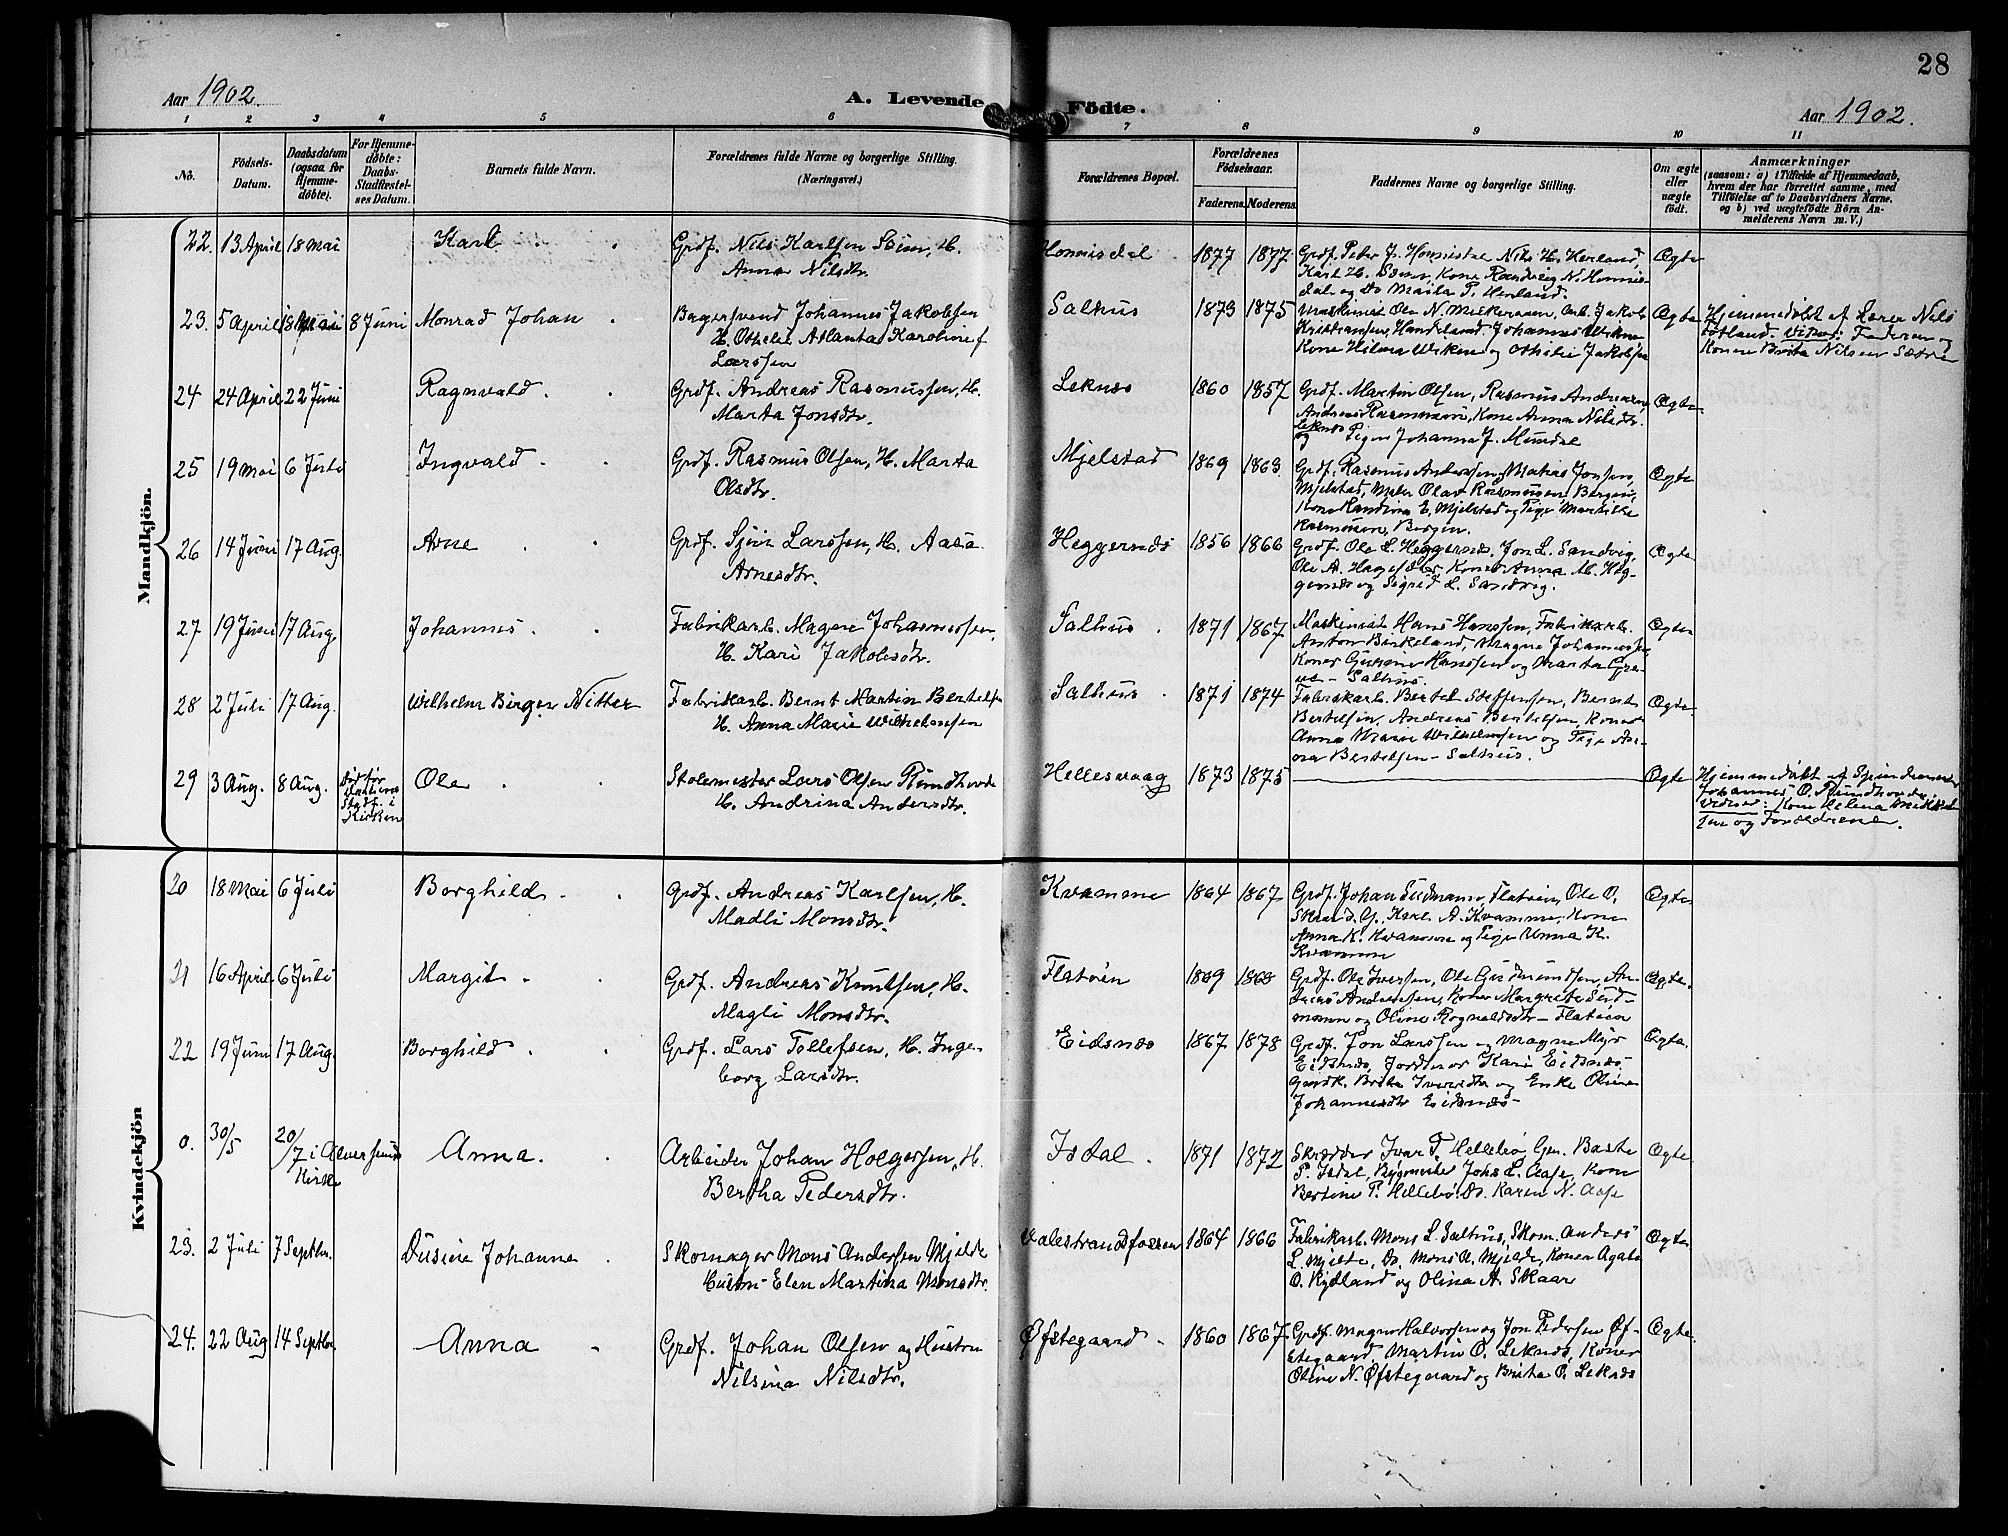 28
Aar 1902.
A. Levende Födte.
Aar 1902.
1 2 3 4 5 6 7 8 9 10 11
No.
Födsels-Datum.
Daabsdatum (ogsaa for Hjemme-døbte).
For Hjemme-døbte: Daabs-Stadfæstel-ses Datum.
Barnets fulde Navn.
Forældrenes fulde Navne og borgerlige Stilling. (Næringsvei.)
Forældrenes Bopæl.
Forældrenes Födselsaar.
Faderens. Moderens.
Faddernes Navne og borgerlige Stilling.
Om ægte eller uægte födt.
Anmærkninger
(saasom: a) i Tilfælde af Hjemmedaab,
hvem der har forrettet samme, med
Tilföielse af to Daabsvidners Navne.
og b) ved uægtefödte Börn An-
melderens Navn m. V.)
Mandkjön.
22. 13 April 18 Mai Karl Grdf. Nils Karlsen H. Anna Nilsdtr. 1877 1877 Grdf. Peder J. Nils H. Herland, Karl H. Kone N. og Do P. Herland. Ægte
23. 5 April 18 Mai 8 Juni Monrad Johan Bagersvend Johannes Jakobsen H. Othelie Atlanta Karoline f. Larssen Salhus 1873 1875 Maskinist Ole N. Arb. Jakob Kristiansen, Johannes Kone Hilma og Othilie Jakobsen Ægte Hjemmedøbt af Lærer Nils Vidner: Faderen og Konen Brita Nilsen
24 24 April 22 Juni Ragnvald Grdf. Andreas Rasmussen, H. Marta Jonsdtr. Leknes 1860 1857 Grdf. Martin Olsen, Rasmus Andreasen, Andreas Rasmussen, Kone Anna Nilsdtr. Leknes og Pige Johanna J. Mundal Ægte
25 19 Mai 6 Juli Ingvald Grdf. Rasmus Olsen, H. Marta Olsdtr. Mjelstad 1869 1863 Grdf. Rasmus Andersen, Matias Jonsen, Mjelstad, Maler Olav Rasmussen Bergen, Kone E. Mjelstad og Pige Martille Rasmussen, Bergen. Ægte
26 14 Juni 17 Aug. Arne Grdf. Sjur Larssen, H. Aasa Arnesdtr. Heggernes 1856 1866 Grdf. Ole L. Heggernes, Jon L. Sandvig, Ole A. Koner Anna M. Heggernes og Sigrid L. Sandvig. Ægte
27 19 Juni 17 Aug. Johannes Fabrikarb. Magne Johannessen, H. Kari Jakobsdtr. Salhus 1871 1867 Maskinist Hans Hanssen, Fabrikarb. Anton Birkeland, Magne Johannessen, Koner Hanssen og Marta Salhus. Ægte
28 2 Juli 17 Aug. Wilhelm Birger Nitter Fabrikarb. Bernt Martin Bertelsen H. Anna Marie Wilhelmsen Salhus 1871 1874 Fabrikarb. Bertel Steffensen, Bernt Bertelsen, Andreas Bertelsen, Kone Anna Marie Wilhelmsen og Pige Anna Bertelsen – Salhus. Ægte
29 3 Aug. 8 Aug. Død før Stadf. i Kirken Ole Stolemester Lars Olsen Rundhovde H. Andrina Andersdtr. Hellesvaag 1873 1875 Ægte Hjemmedøbt af Johannes O. Rundhovde. Vidner: Kone Helena og Forældrene.
Kvindekjön
20 18 Mai 6 Juli Borghild Grdf. Andreas Karlsen, H. Madli Monsdtr. Kvamme 1864 1867 Grdf. Johan Flatøen, Ole O. Karl A. Kvamme, Kone Anna K. Kvamme og Pige Anna K. Kvamme Ægte
21 16 April 6 Juli Margit Grdf. Andreas Knutsen, H. Magli Monsdtr. Flatøen 1869 Grdf. Ole Iversen, Ole Gudmundsen, Andreas Andersen, Koner Margrete og Oline Rognaldsdtr – Flatøen Ægte.
22 19 Juni 17 Aug. Borghild Grdf. Lars Tollefsen, H. Ingeborg Larsdtr. Eidsnes 1867 1878 Grdf. Jon Larssen og Magne Eidsnes, Jordmor Kari Eidsnes, Brita Iversdtr og Enke Oline Johannesdtr Eidsnes – Ægte.
0. 30/5 20/7 i Alversund Kirke Anna. Arbeider Johan Holgersen, H. Bertha Pedersdtr. Isdal 1871 1872 Skrædder Ivar T. Hellebø, Baste P. Isdal, Bygmester Johs L. Aase, Kone Bertine P. Hellebø, Do. Karen N. Aase Ægte
23. 2 Juli 7 Septbr. Dusine Johanne Skomager Mons Andersen Mjelde Hustru Elen Martina Monsdtr. Valestrandsfossen 1864 1866 Fabrikarb. Mons L. Salhus, Skom. Anders L. Mjelde, Do. Mons A. Mjelde, Koner Agata O. og Olina A. Skaar Ægte
24. 22 Aug 14 Septbr. Anna Grdf. Johan Olsen og Hustru Nilsina Nilsdtr. Øfstegaard 1860 1867 Grdf. Magne Halvorsen og Jon Pedersen Øfstegaard, Martin O. Leknes, Koner Oline N. Øfstegaard og Brita O. Leknes Ægte